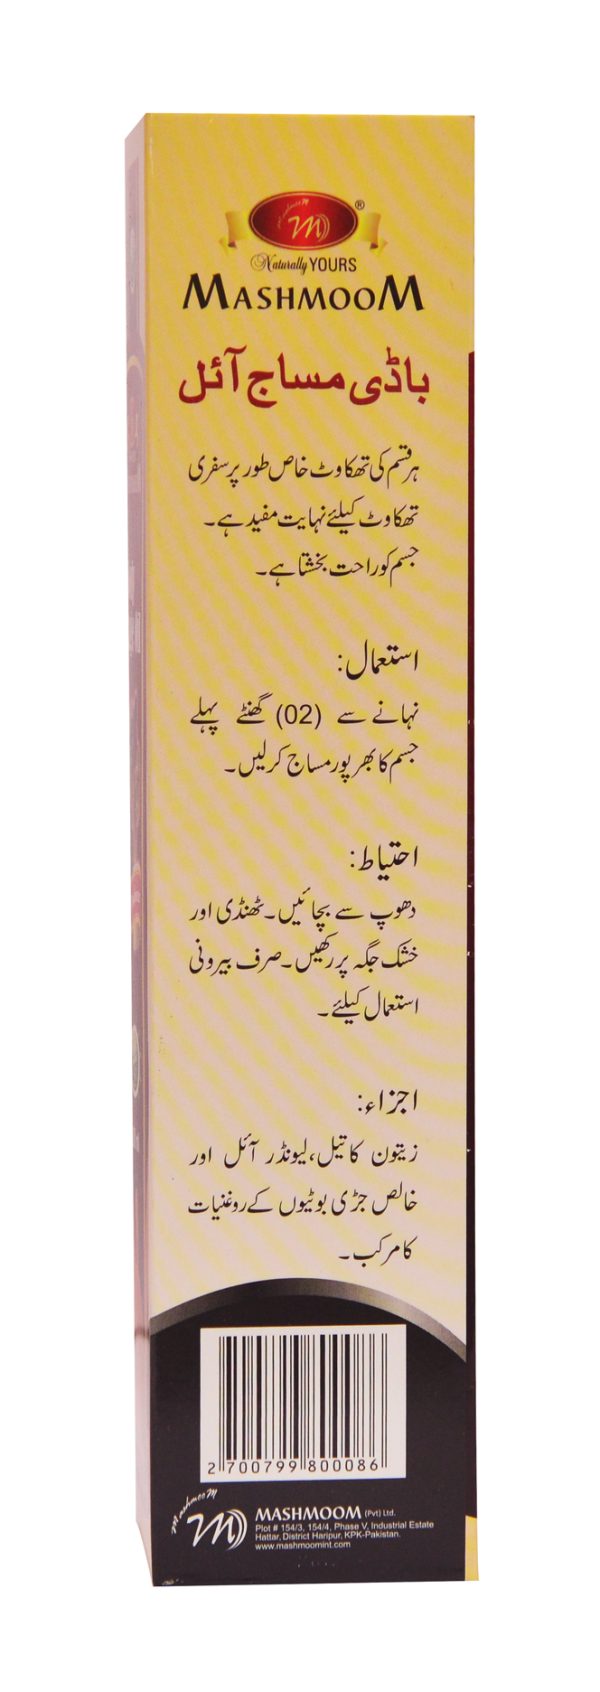 MashmooM
M
®
Naturally YOURS
MASHMOOM
باڈی مساج آئل
ہر قسم کی تھکاوٹ خاص طور پر سفری
تھکاوٹ کیلئے نہایت مفید ہے۔
جسم کو راحت بخشتا ہے۔
استعمال:
نہانے سے (02) گھنٹے پہلے
جسم کا بھرپور مساج کرلیں۔
احتیاط:
دھوپ سے بچائیں۔ ٹھنڈی اور
خشک جگہ پر رکھیں۔ صرف بیرونی
استعمال کیلئے۔
اجزاء:
زیتون کا تیل، لیونڈر آئل اور
خالص جڑی بوٹیوں کے روغنیات
کا مرکب۔
2 700799 800086
MashmooM
M
MASHMOOM (Pvt) Ltd.
Plot # 154/3, 154/4, Phase V, Industrial Estate
Hattar, District Haripur, KPK-Pakistan.
www.mashmoomint.com